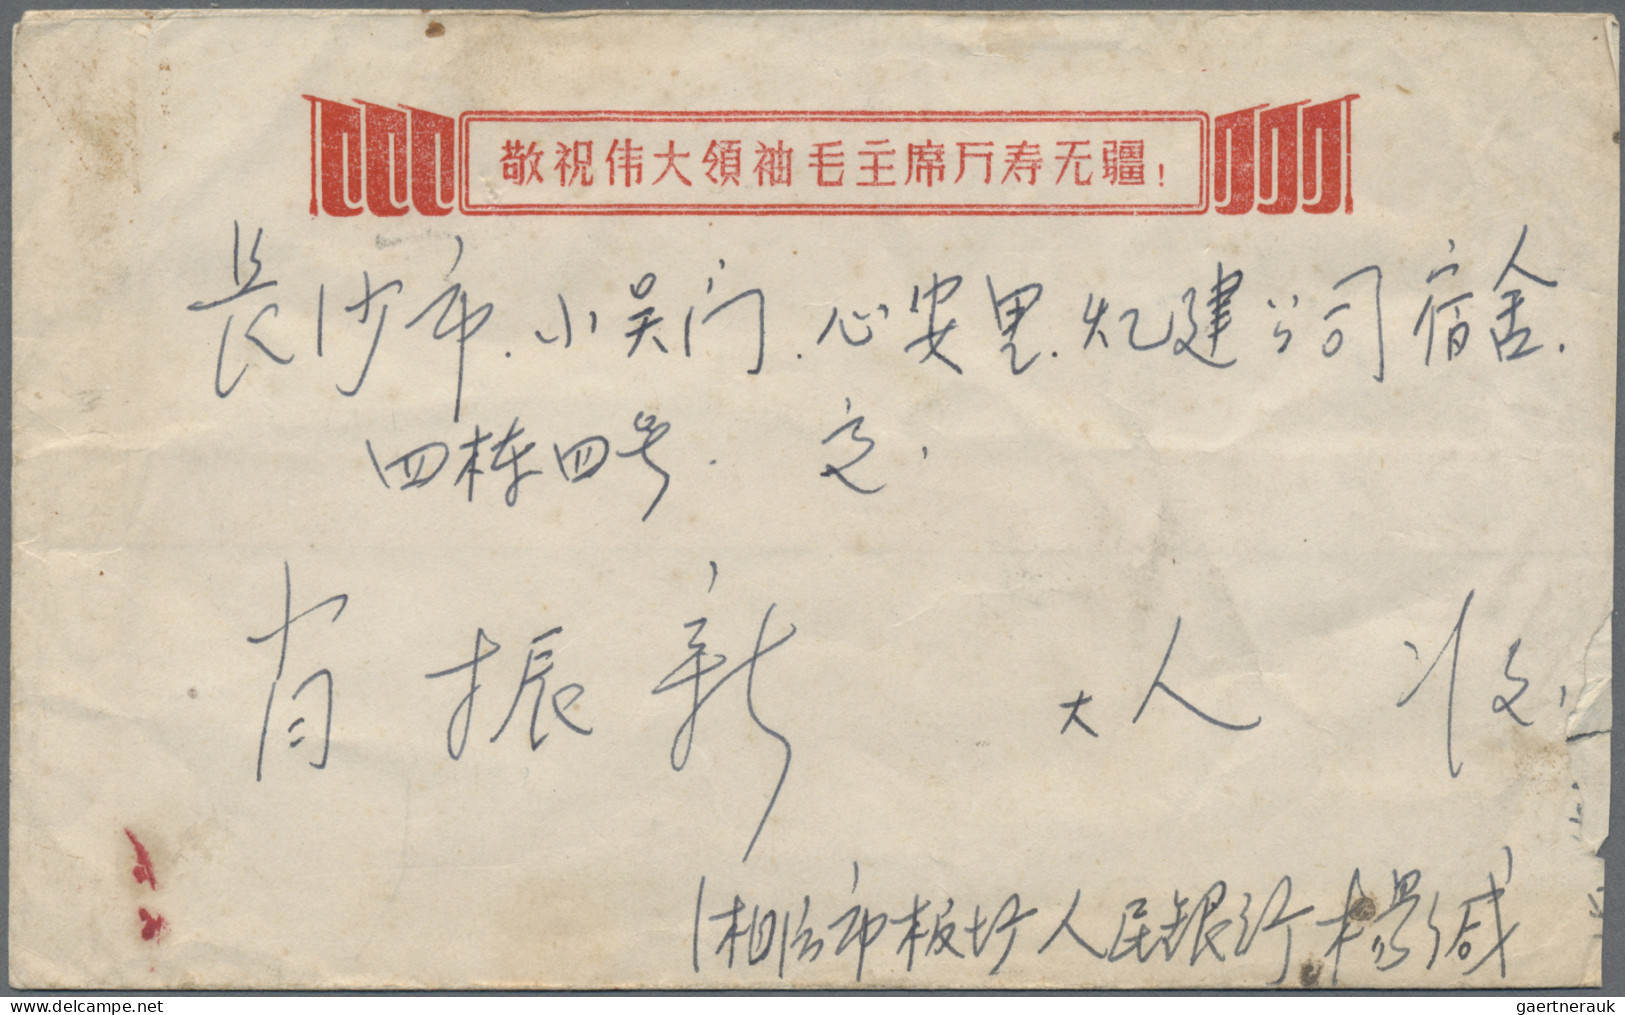 敬祝伟大領袖毛主席万寿无疆！
长沙市.小吴门.心安里.灿建公司宿舍.
四栋四号. 交.
肖振新 大人 收.
湘潭市板圹人民银行杨缄
delcampe.net
gaertnerauk